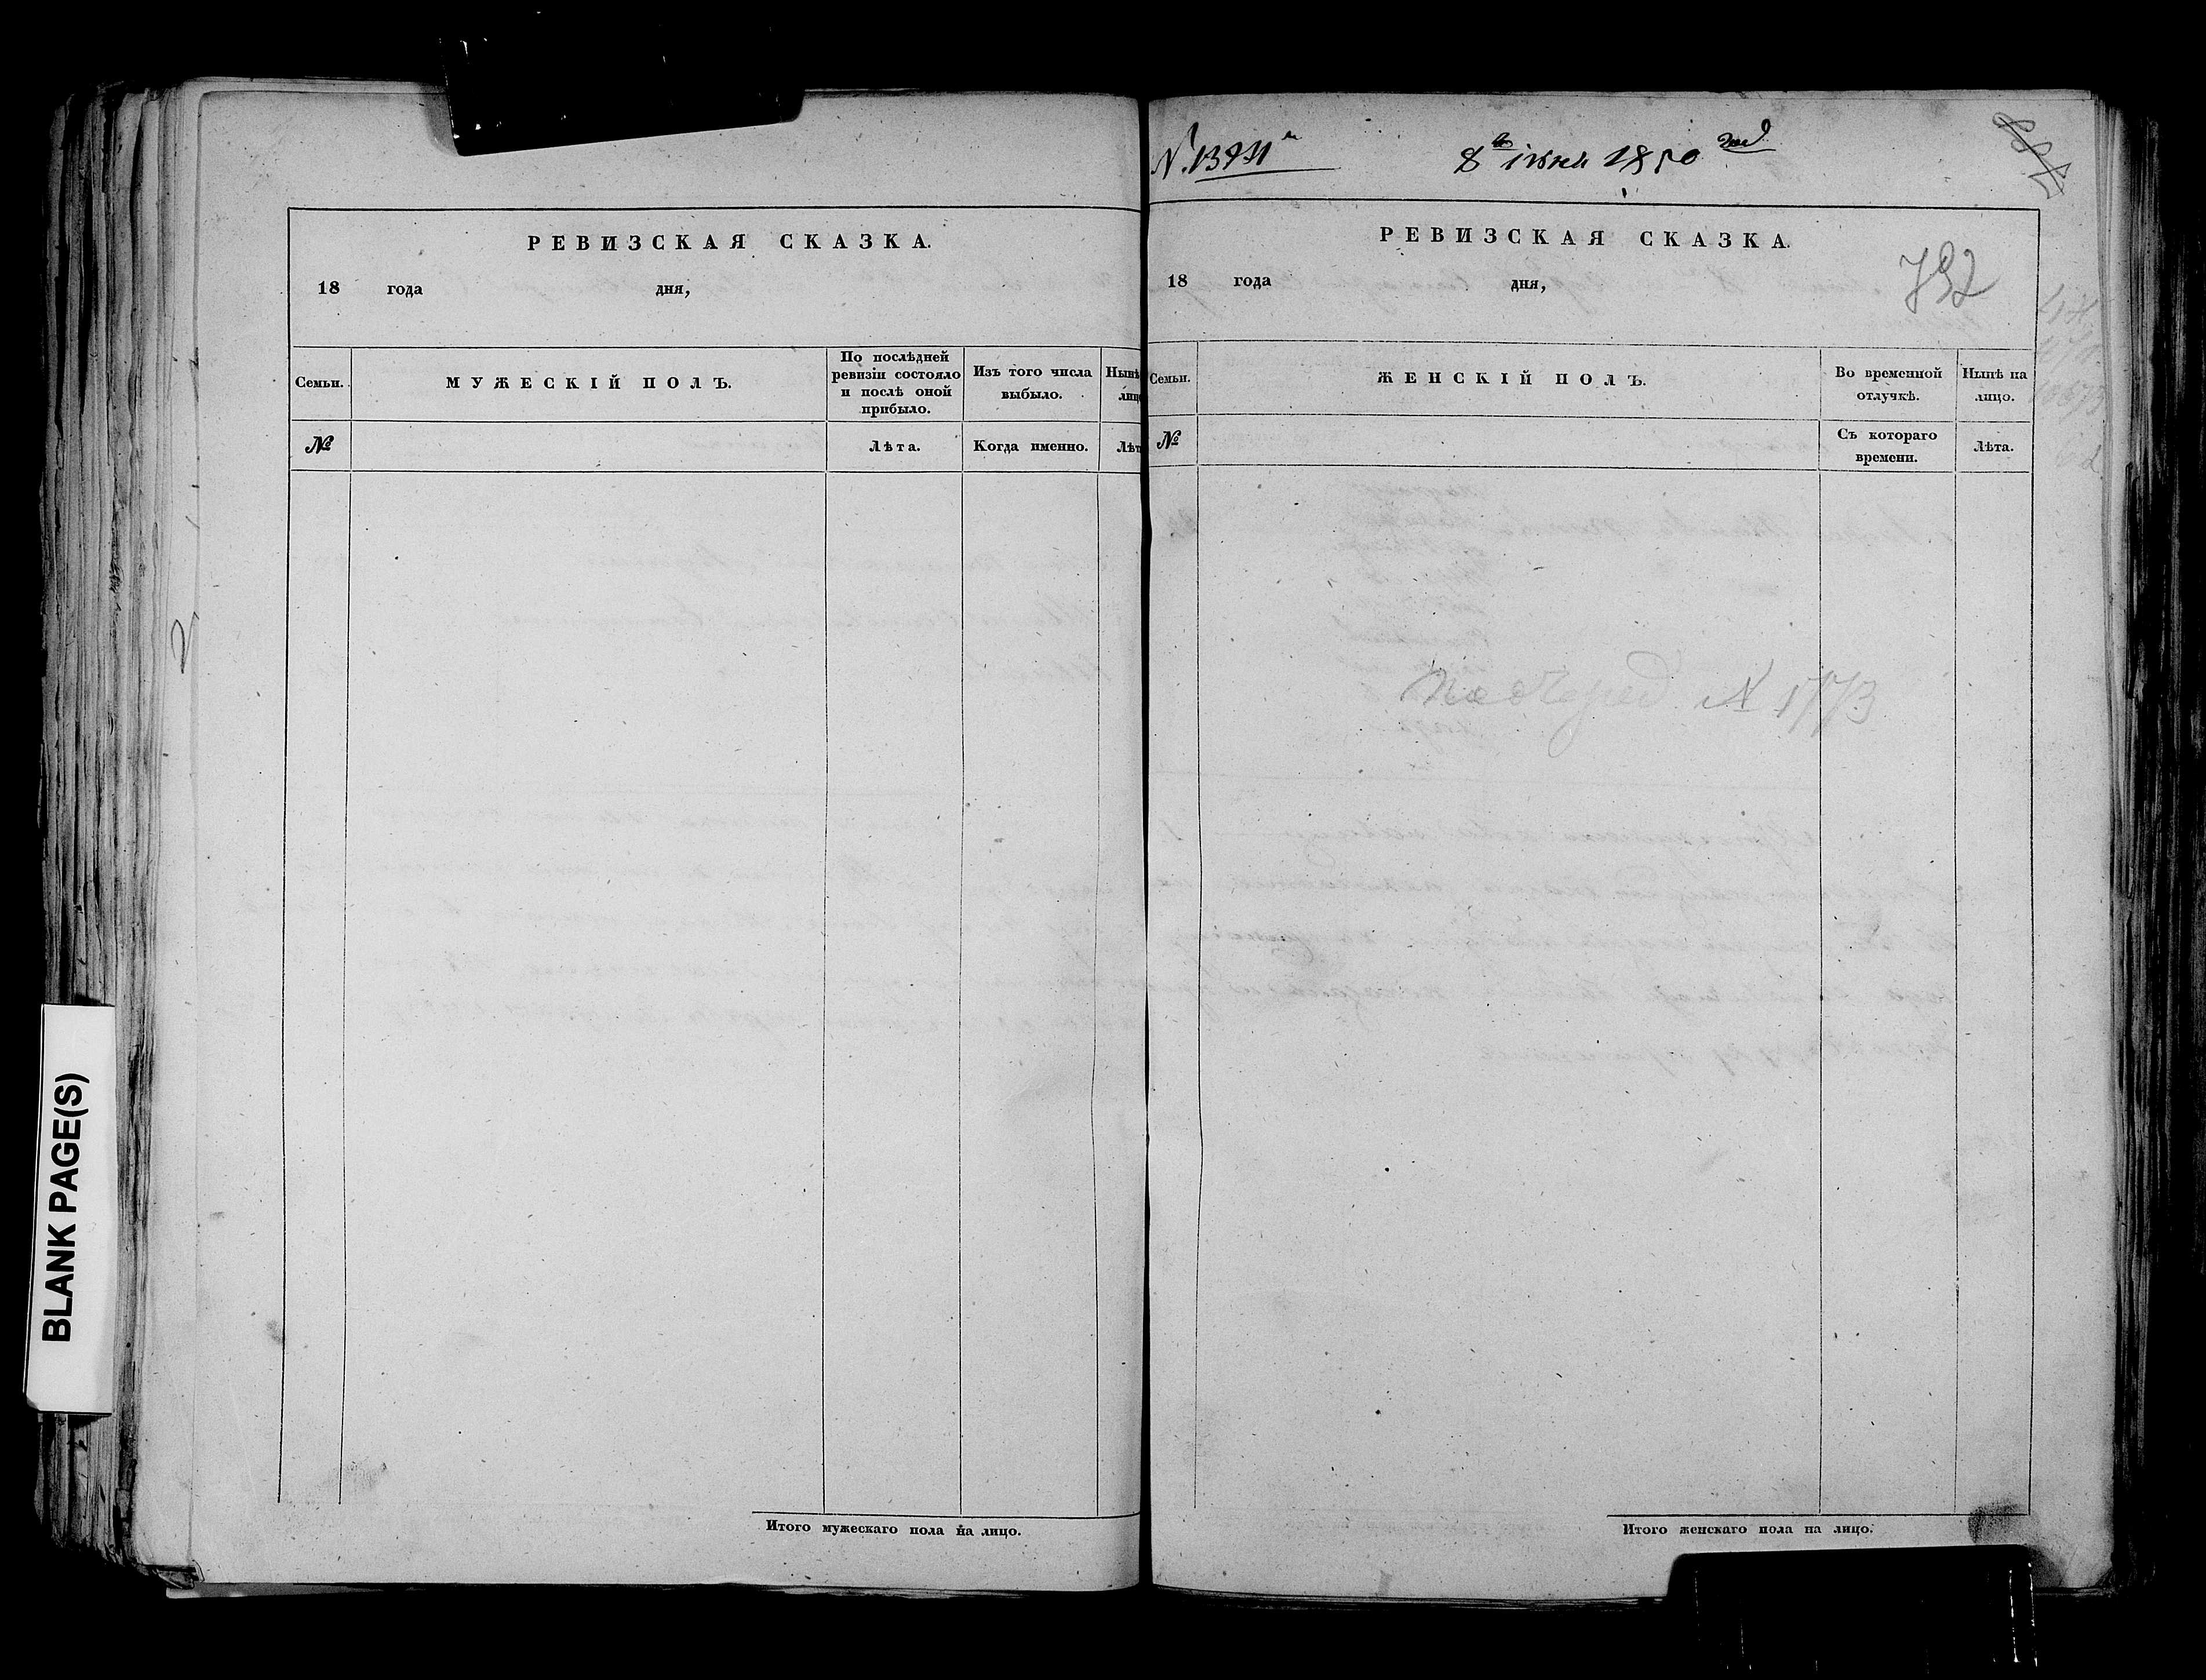 BLANK PAGE(S)
РЕВИЗСКАЯ СКАЗКА.
18 года дня,
Семьи.
МУЖЕСКІЙ ПОЛЪ.
По послѣдней
ревизіи состояло
и послѣ оной
прибыло.
Изъ того числа
выбыло.
Нынѣ
лиц
№
Лѣта.
Когда именно.
Лѣт
Итого мужескаго пола на лицо.
8го іюня 1850 год
РЕВИЗСКАЯ СКАЗКА.
18 года дня,
792
Семьи.
ЖЕНСКІЙ ПОЛЪ.
Во временной
отлучкѣ.
Нынѣ на
лицо.
№
Съ котораго
времени.
Лѣта.
N 1773
Итого женскаго пола на лицо.